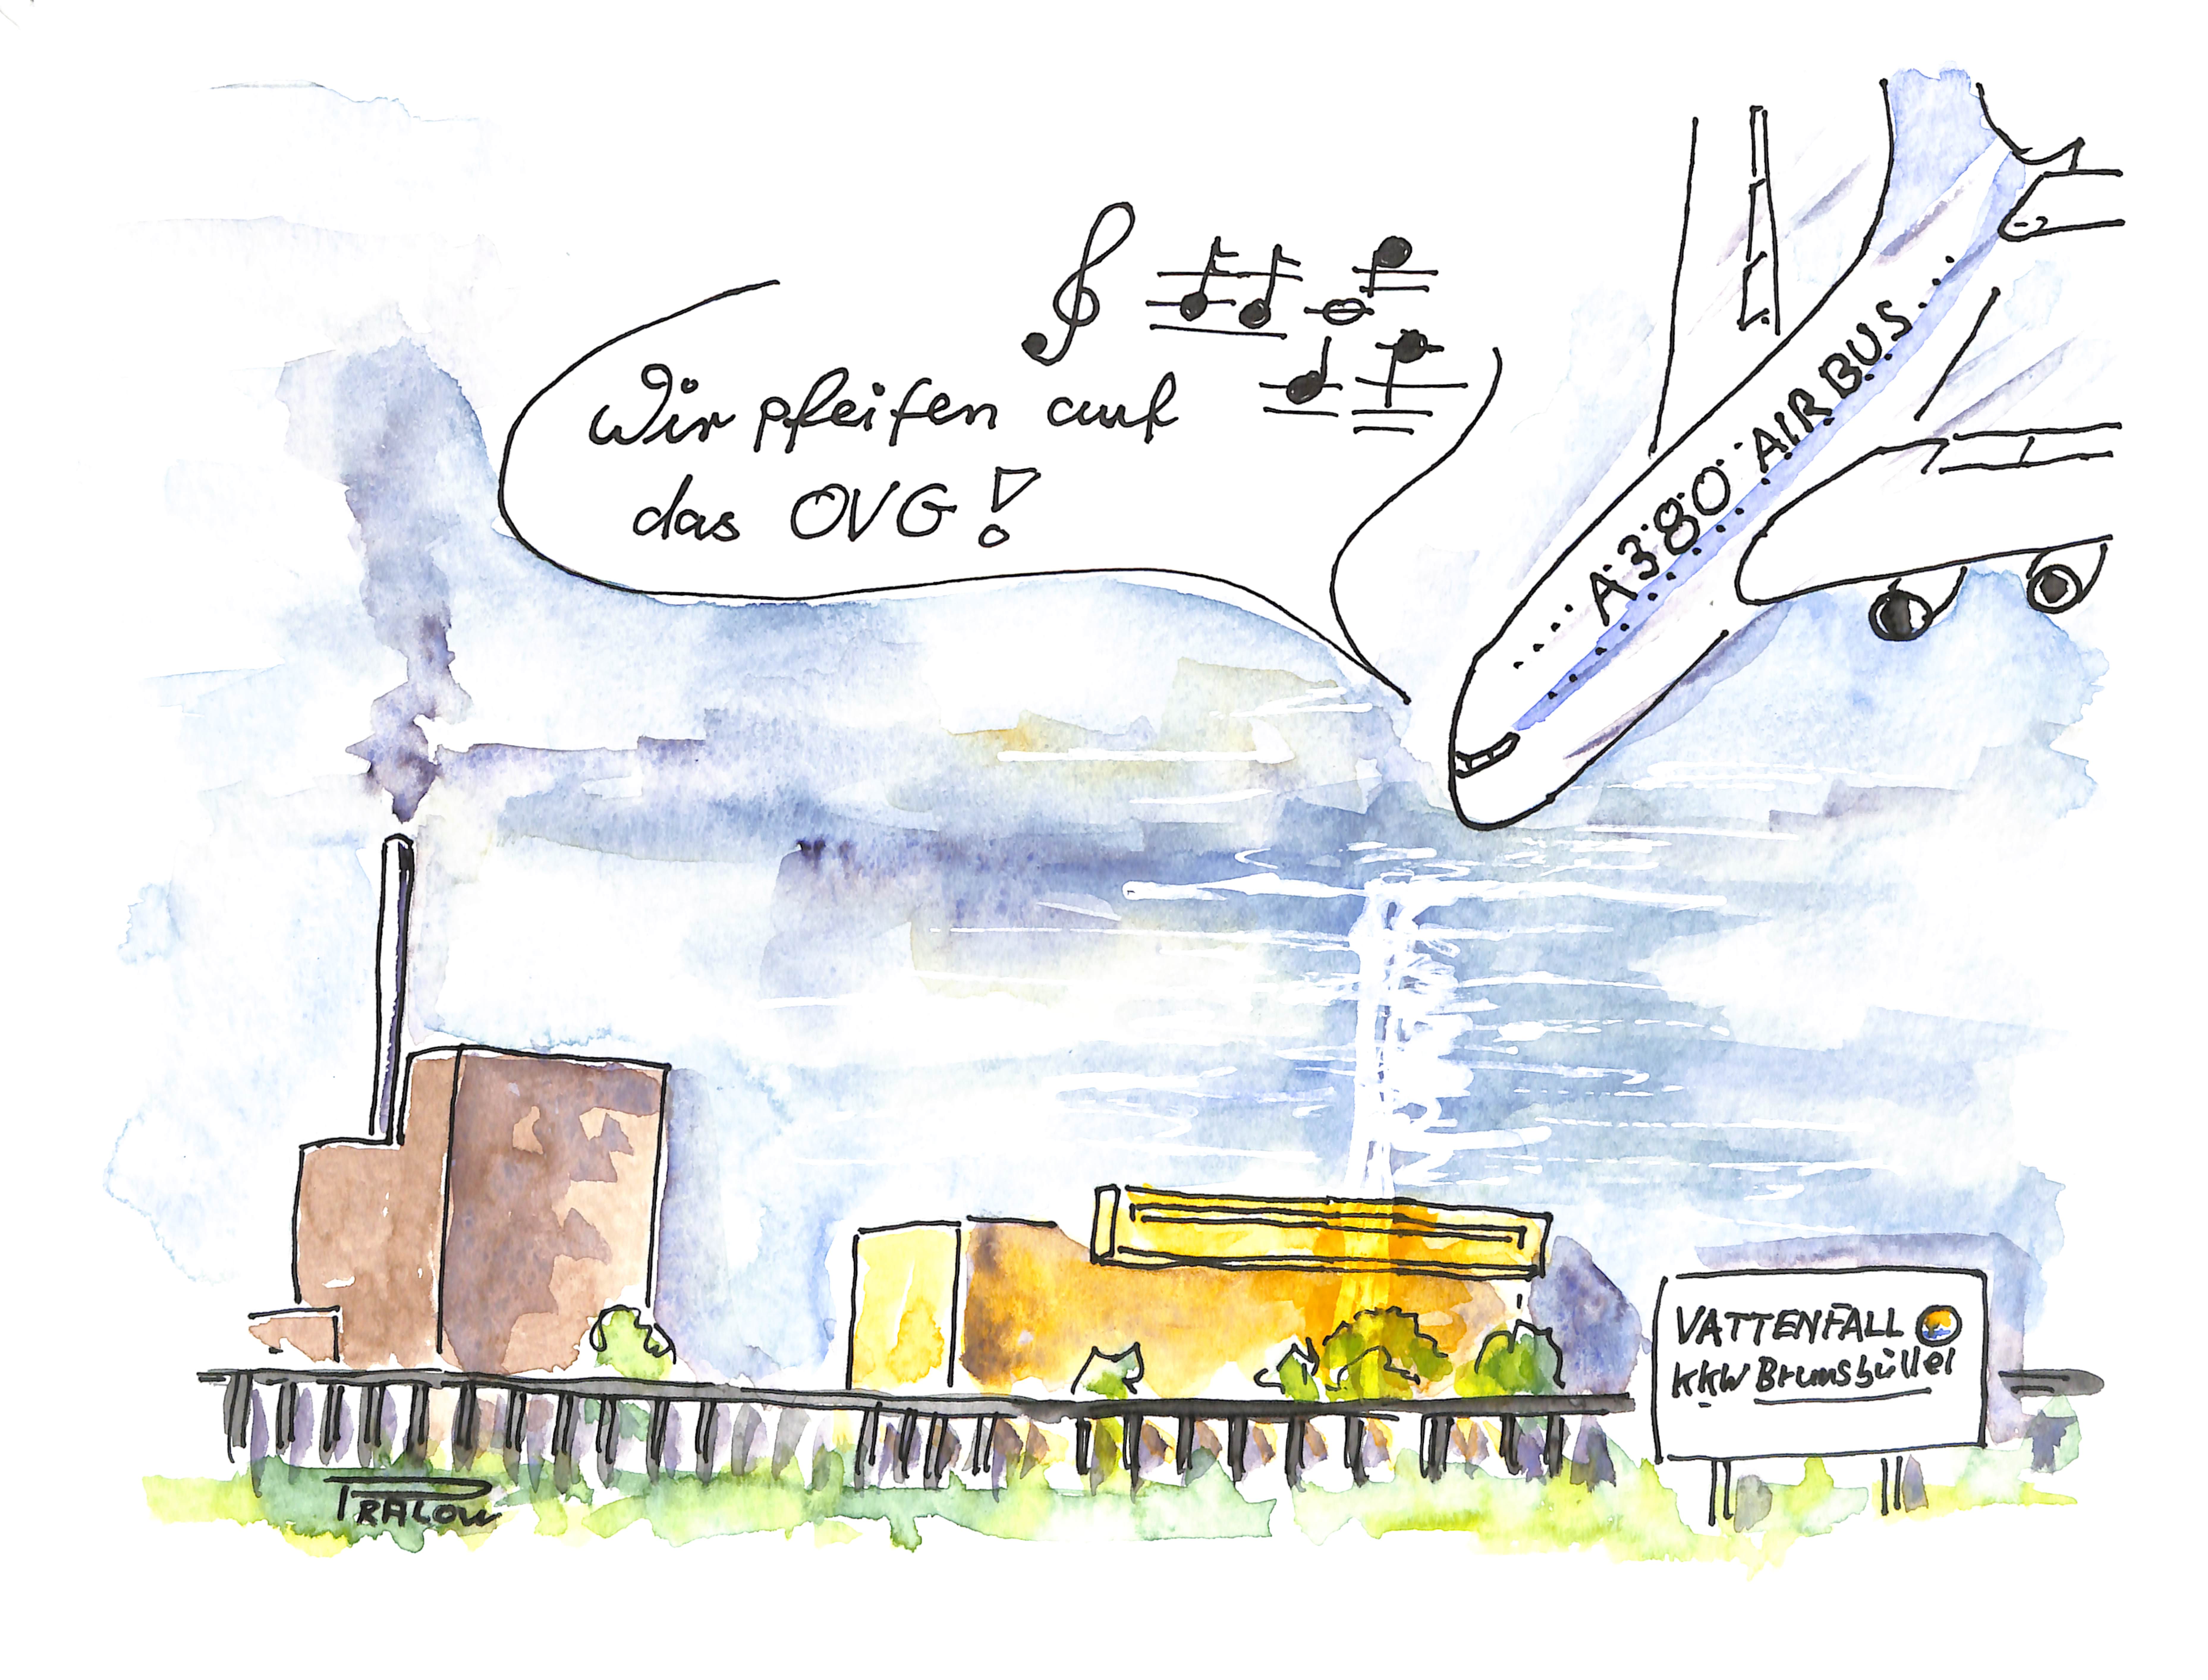 Wir pfeifen auf
das OVG!
A380 AIRBUS
VATTENFALL
KKW Brunsbüttel
PRALOW